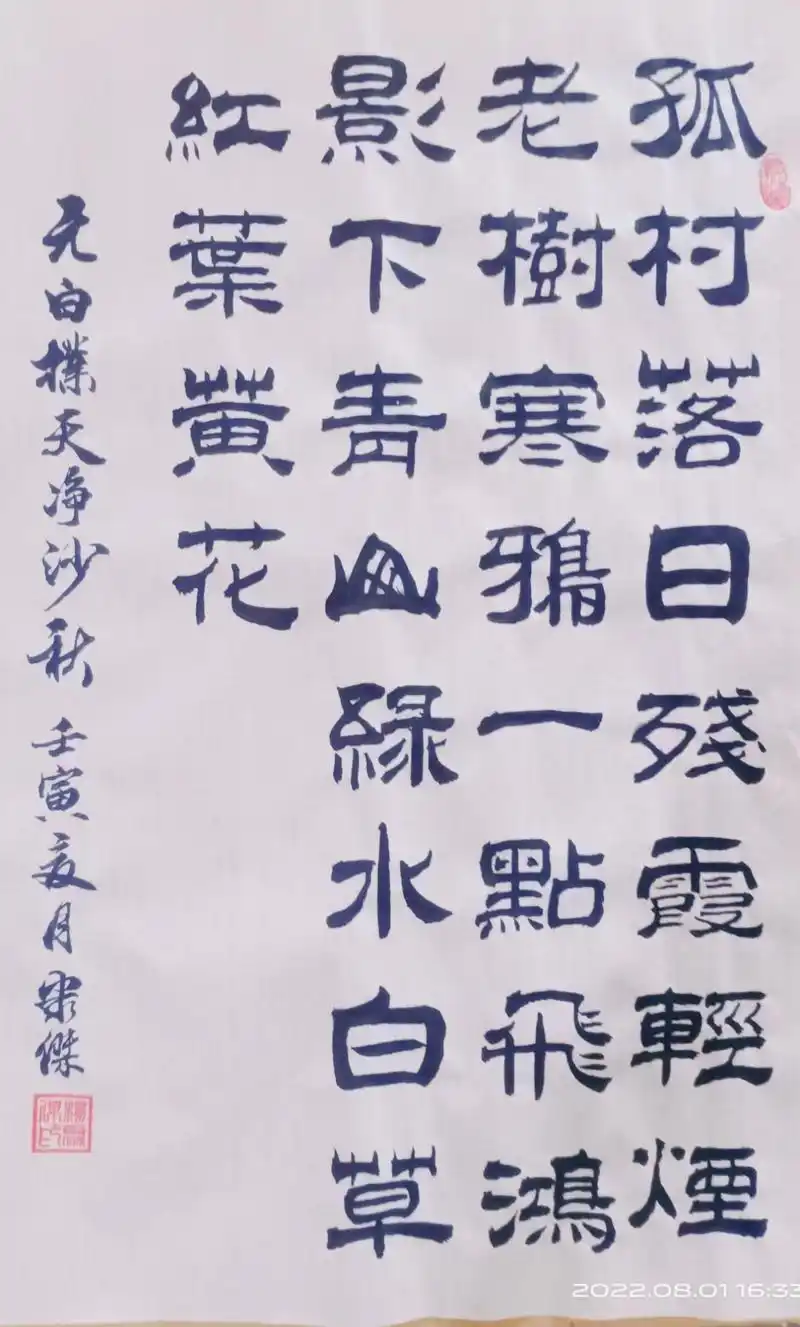 孤村落日殘霞輕煙
老樹寒鴉一點飛鴻
影下青山綠水白草
紅葉黃花
元白樸天净沙秋 壬寅夏月宗傑
2022.08.01 16:33